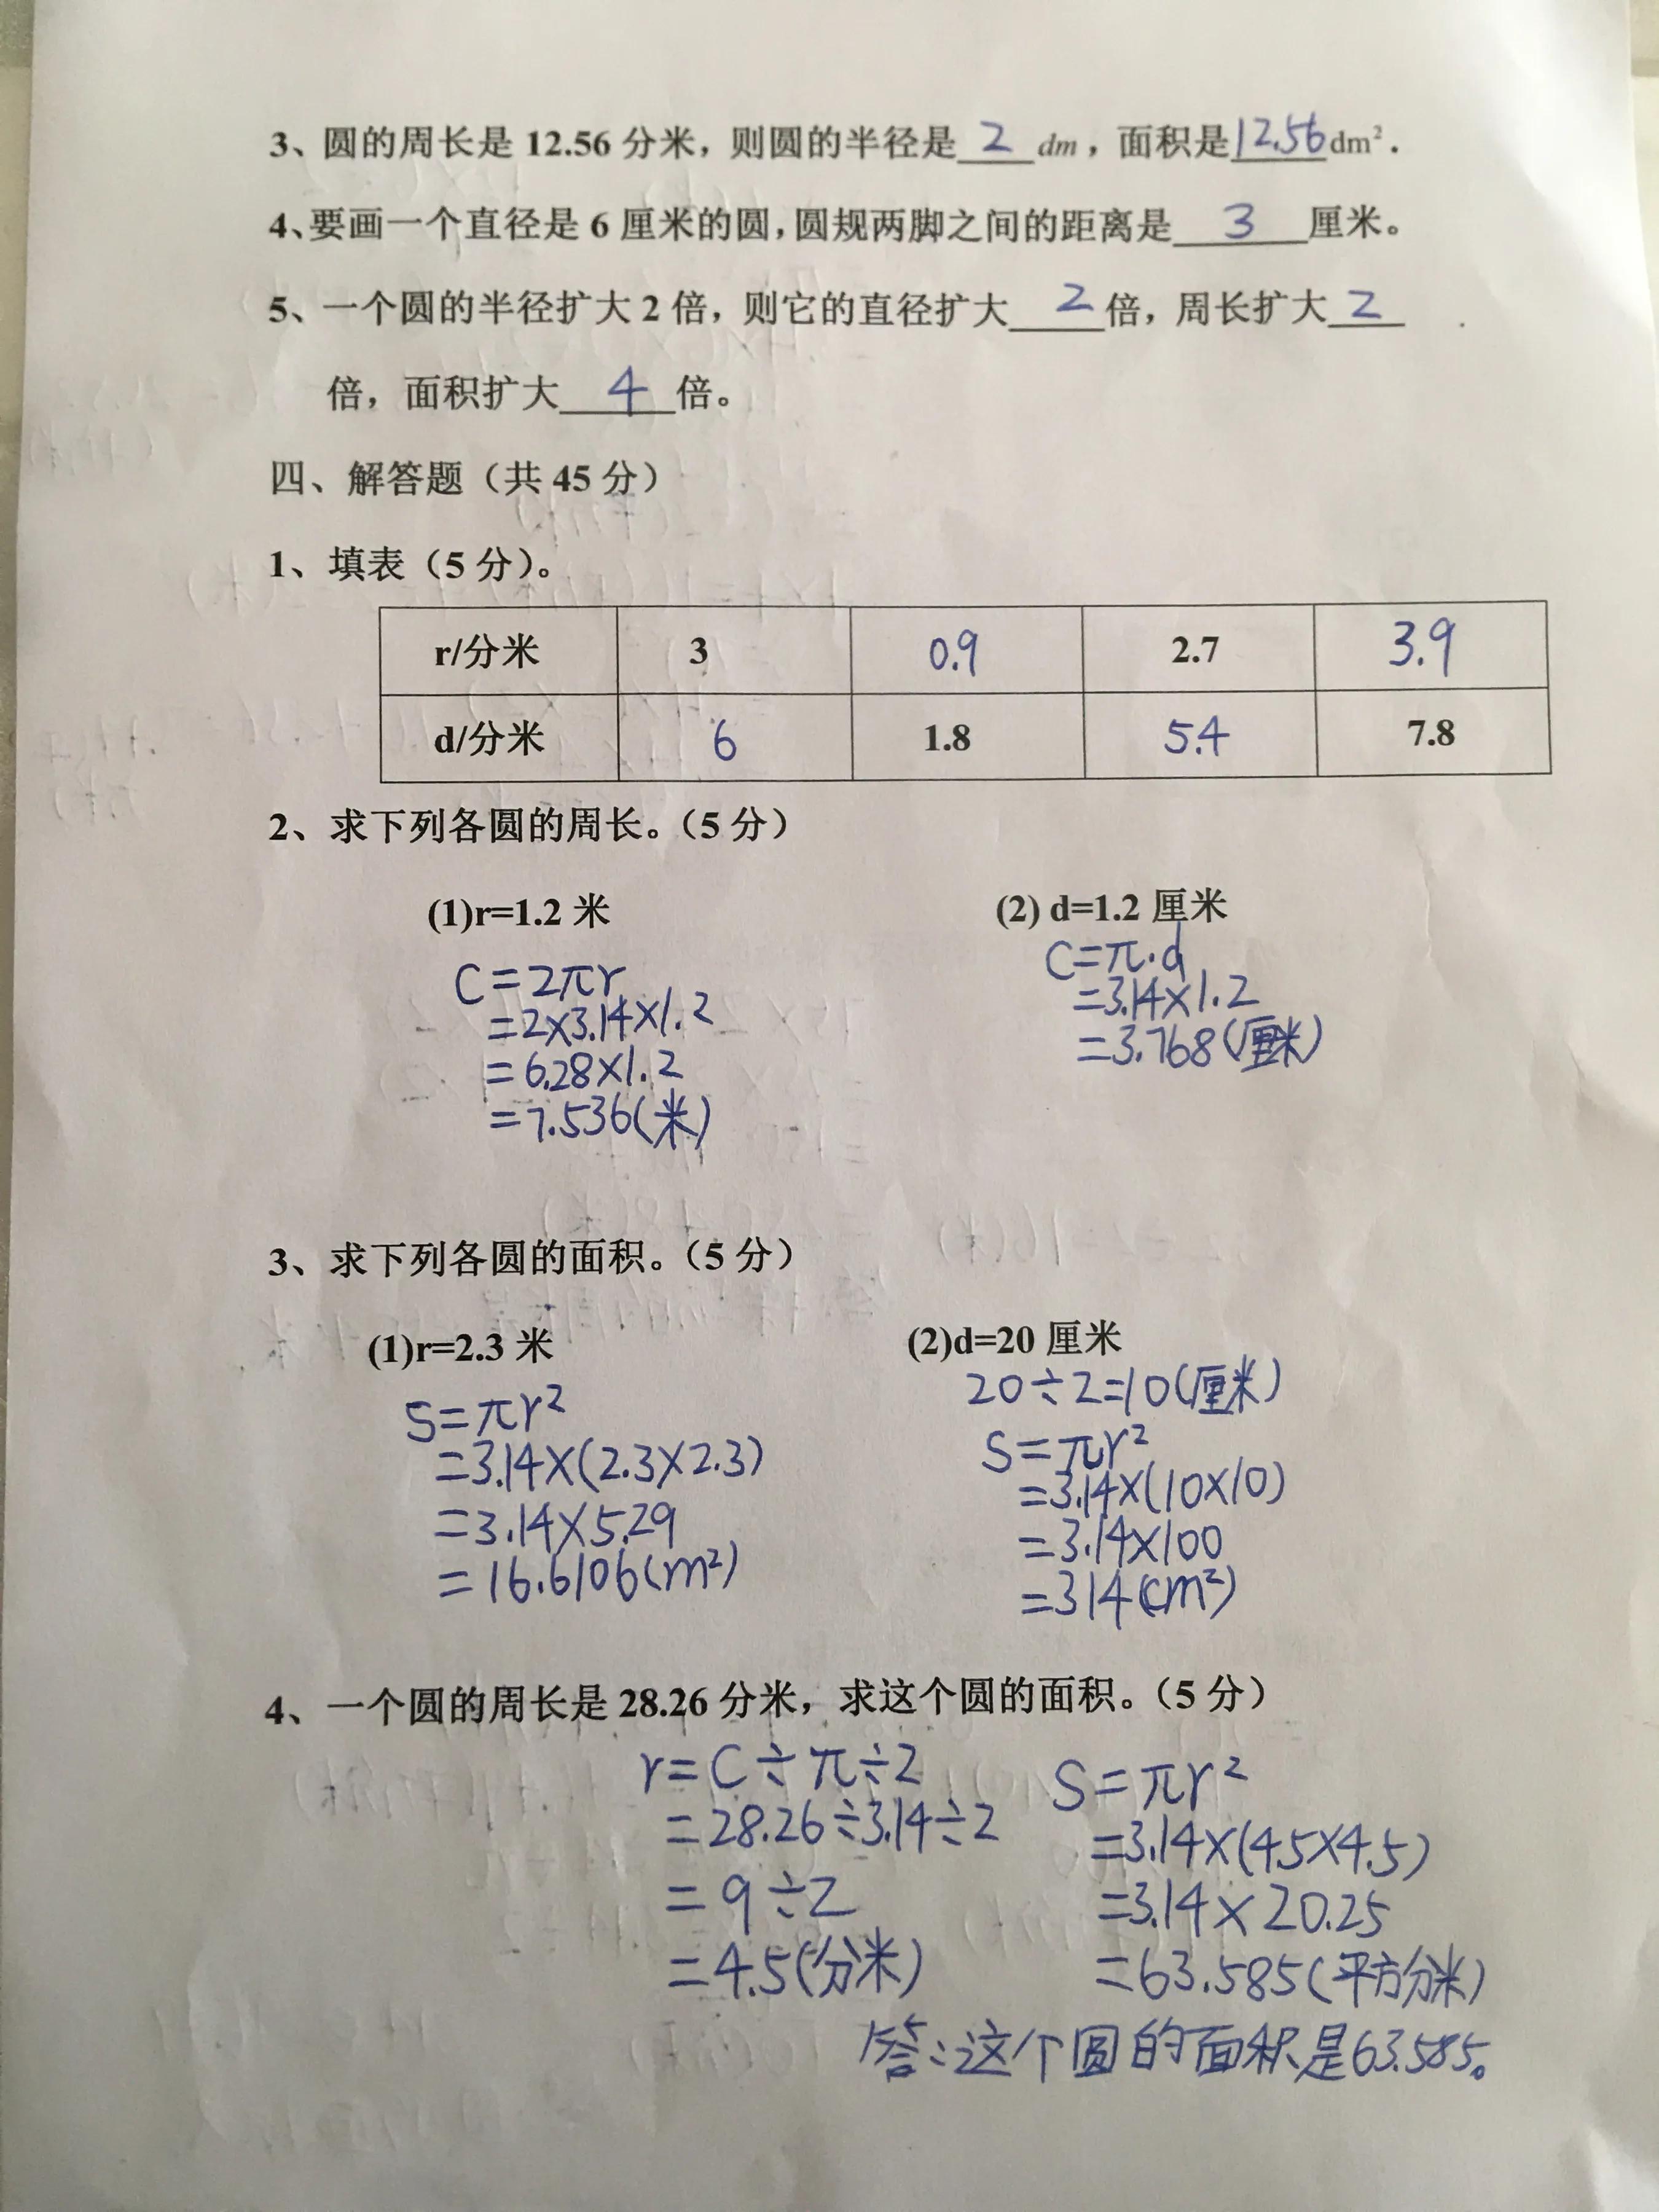 3、圆的周长是 12.56 分米，则圆的半径是 2 dm，面积是 12.56 dm².
4、要画一个直径是 6 厘米的圆，圆规两脚之间的距离是 3 厘米。
5、一个圆的半径扩大 2 倍，则它的直径扩大 2 倍，周长扩大 2
倍，面积扩大 4 倍。
四、解答题（共 45 分）
1、填表（5 分）。
r/分米 3 0.9 2.7 3.9
d/分米 6 1.8 5.4 7.8
2、求下列各圆的周长。（5 分）
(1)r=1.2 米
C=2πr
=2×3.14×1.2
=6.28×1.2
=7.536(米)
(2) d=1.2 厘米
C=π·d
=3.14×1.2
=3.768(厘米)
3、求下列各圆的面积。（5 分）
(1)r=2.3 米
S=πr²
=3.14×(2.3×2.3)
=3.14×5.29
=16.6106(m²)
(2)d=20 厘米
20÷2=10(厘米)
S=πr²
=3.14×(10×10)
=3.14×100
=314(cm²)
4、一个圆的周长是 28.26 分米，求这个圆的面积。（5 分）
r=C÷π÷2
=28.26÷3.14÷2
=9÷2
=4.5(分米)
S=πr²
=3.14×(4.5×4.5)
=3.14×20.25
=63.585(平方分米)
答：这个圆的面积是63.585。